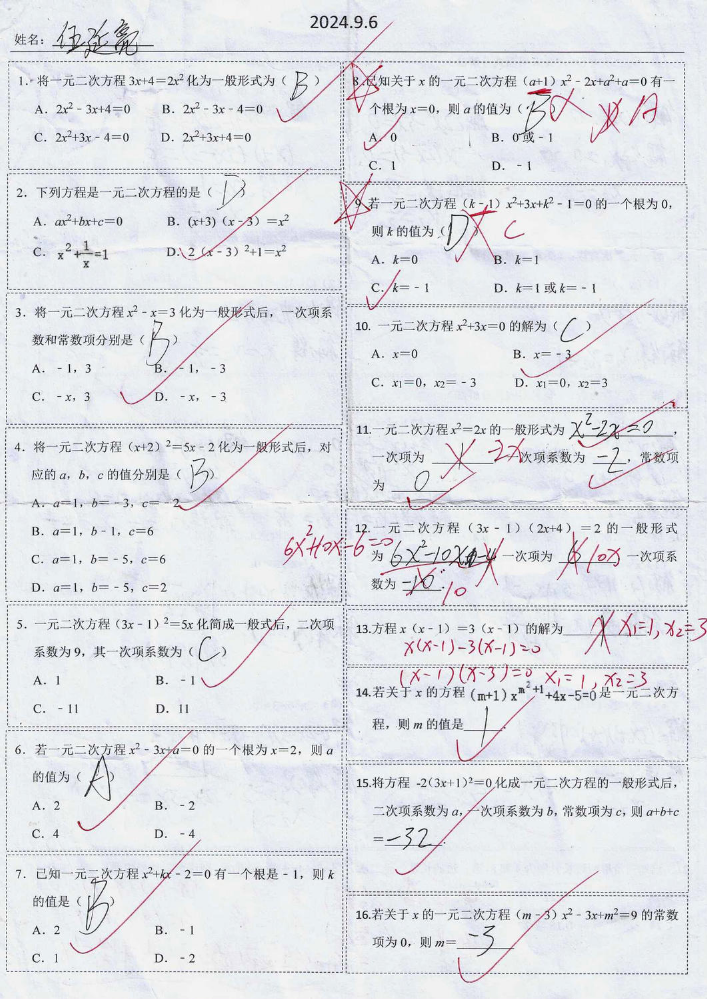 2024.9.6
姓名：伍延亮
1．将一元二次方程 3x+4=2x²化为一般形式为（ B ）
A．2x²﹣3x+4=0 B．2x²﹣3x﹣4=0
C．2x²+3x﹣4=0 D．2x²+3x+4=0
2．下列方程是一元二次方程的是（ D ）
A．ax²+bx+c=0 B．(x+3)（x﹣3）=x²
C．x²+1/x=1 D．2（x﹣3）²+1=x²
3．将一元二次方程 x²﹣x=3 化为一般形式后，一次项系
数和常数项分别是（ B ）
A．﹣1，3 B．﹣1，﹣3
C．﹣x，3 D．﹣x，﹣3
4．将一元二次方程（x+2）²=5x﹣2 化为一般形式后，对
应的 a，b，c 的值分别是（ B ）
A．a=1，b=﹣3，c=﹣2
B．a=1，b﹣1，c=6
C．a=1，b=﹣5，c=6
D．a=1，b=﹣5，c=2
5．一元二次方程（3x﹣1）²=5x 化简成一般式后，二次项
系数为 9，其一次项系数为（ C ）
A．1 B．﹣1
C．﹣11 D．11
6．若一元二次方程 x²﹣3x+a=0 的一个根为 x=2，则 a
的值为（ A ）
A．2 B．﹣2
C．4 D．﹣4
7．已知一元二次方程 x²+kx﹣2=0 有一个根是﹣1，则 k
的值是（ B ）
A．2 B．﹣1
C．1 D．﹣2
8.已知关于 x 的一元二次方程（a+1）x²﹣2x+a²+a=0 有一
个根为 x=0，则 a 的值为（ B ） A
A．0 B．0 或﹣1
C．1 D．﹣1
9.若一元二次方程（k﹣1）x²+3x+k²﹣1=0 的一个根为 0，
则 k 的值为（ D ） C
A．k=0 B．k=1
C．k=﹣1 D．k=1 或 k=﹣1
10．一元二次方程 x²+3x=0 的解为（ C ）
A．x=0 B．x=﹣3
C．x₁=0，x₂=﹣3 D．x₁=0，x₂=3
11.一元二次方程 x²=2x 的一般形式为 x²-2x=0，
一次项为 -2x 次项系数为 -2，常数项
为 0
12.一元二次方程（3x﹣1）（2x+4）=2 的一般形式
6x²+10x-6=0
为 一次项为 10x 一次项系
数为 10
13.方程 x（x﹣1）=3（x﹣1）的解为 x₁=1, x₂=3
x(x-1)-3(x-1)=0
(x-1)(x-3)=0 x₁=1, x₂=3
14.若关于 x 的方程 (m+1)x^(m²+1)+4x-5=0 是一元二次方
程，则 m 的值是 1
15.将方程 -2(3x+1)²=0 化成一元二次方程的一般形式后，
二次项系数为 a，一次项系数为 b，常数项为 c，则 a+b+c
=-32
16.若关于 x 的一元二次方程（m﹣3）x²﹣3x+m²=9 的常数
项为 0，则 m= -3